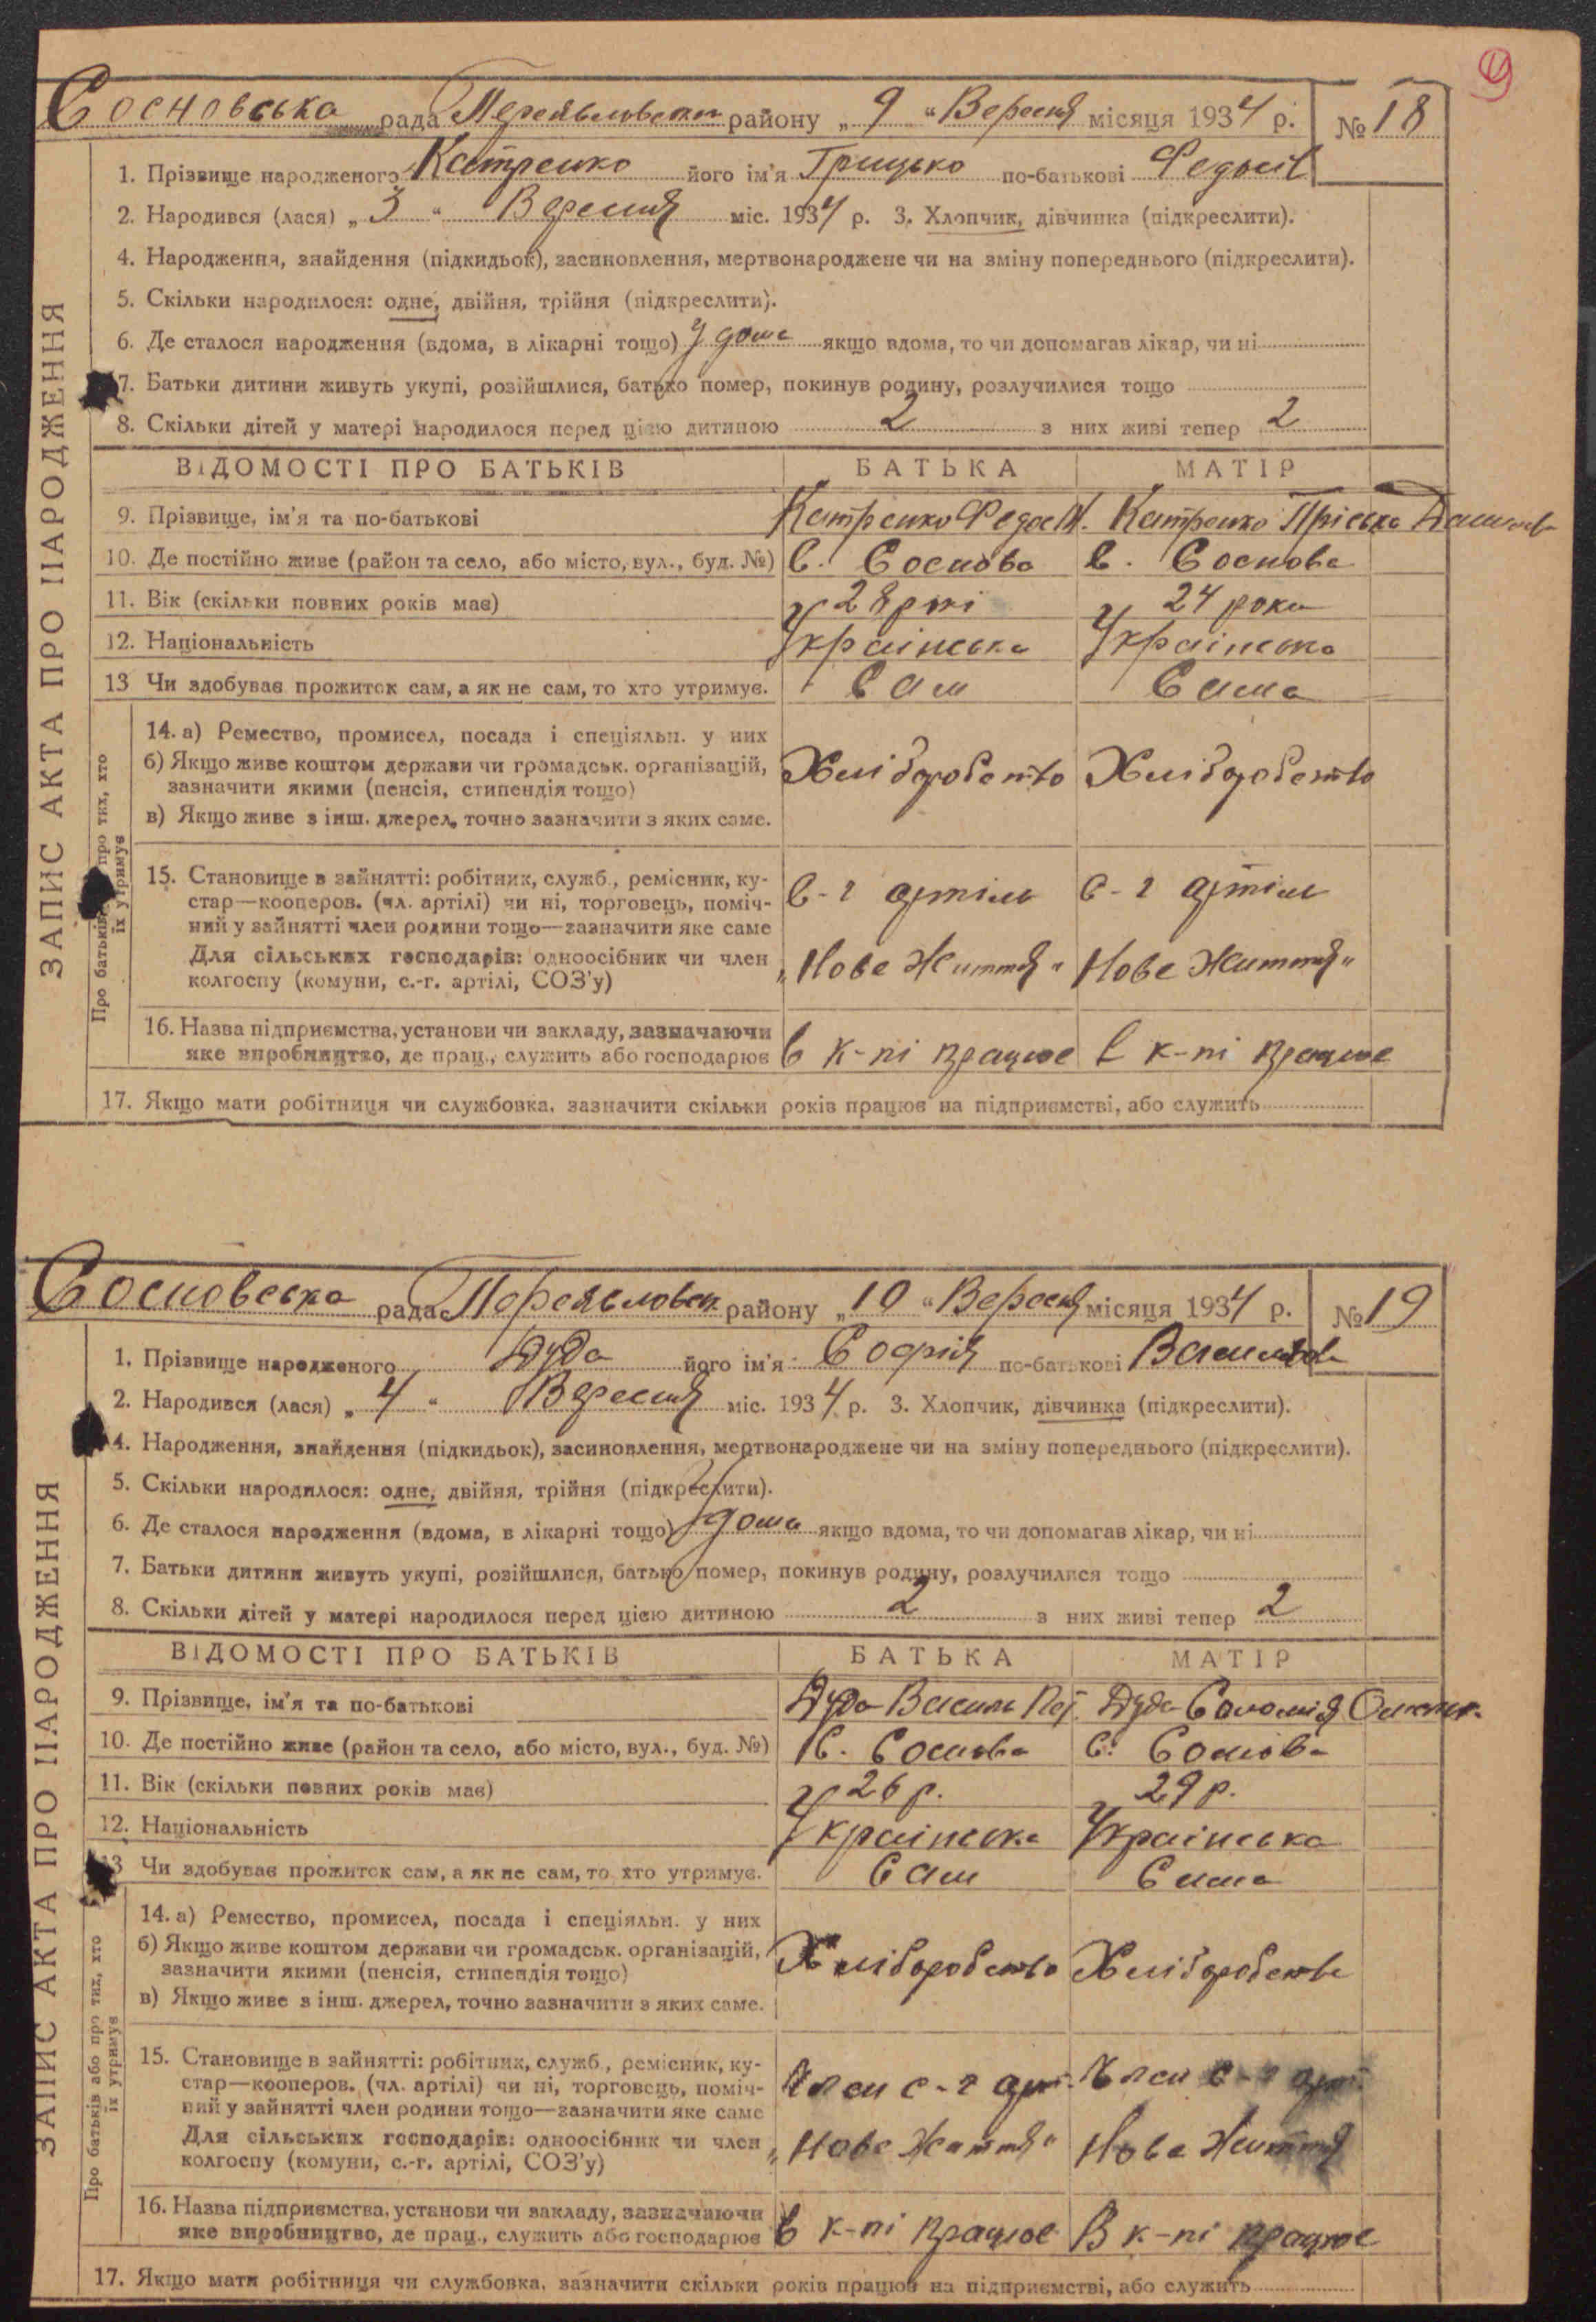 9
Сосновська рада Переяславськ району „ 9 “ Вересня місяця 1934 р. № 18
ЗАПИС АКТА ПРО НАРОДЖЕННЯ
1. Прізвище народженого Катренко його ім'я Грицько по-батькові
2. Народився (лася) „ 3 “ Вересня міс. 1934 р. 3. Хлопчик, дівчинка (підкреслити).
4. Народження, знайдення (підкидьок), засиновлення, мертвонароджене чи на зміну попереднього (підкреслити).
5. Скільки народилося: одне, двійня, трійня (підкреслити).
6. Де сталося народження (вдома, в лікарні тощо) У дома якщо вдома, то чи допомагав лікар, чи ні
7. Батьки дитини живуть укупі, розійшлися, батько помер, покинув родину, розлучилися тощо
8. Скільки дітей у матері народилося перед цією дитиною 2 з них живі тепер 2
ВІДОМОСТІ ПРО БАТЬКІВ БАТЬКА МАТІР
9. Прізвище, ім'я та по-батькові Катренко Федос М. Катренко Пріська
10. Де постійно живе (район та село, або місто, вул., буд. №) С. Соснова С. Соснова
11. Вік (скільки повних років має) 28 24 рока
12. Національність Українська Українська
13 Чи здобуває прожиток сам, а як не сам, то хто утримує. Сам Сама
Про батьків про тих, хто
їх утримує
14. а) Ремество, промисел, посада і спеціяльн. у них
б) Якщо живе коштом держави чи громадськ. організацій, Хліборобство Хліборобство
зазначити якими (пенсія, стипендія тощо)
в) Якщо живе з інш. джерел, точно зазначити з яких саме.
15. Становище в зайнятті: робітник, служб., ремісник, ку-
стар—кооперов. (чл. артілі) чи ні, торговець, поміч- с-г артіль с-г артіль
ний у зайнятті член родини тощо—зазначити яке саме
Для сільських господарів: одноосібник чи член „Нове Життя“ Нове Життя“
колгоспу (комуни, с.-г. артілі, СОЗ'у)
16. Назва підприємства, установи чи закладу, зазначаючи
яке виробництво, де прац., служить або господарює в к-пі працює в к-пі працює
17. Якщо мати робітниця чи службовка, зазначити скільки років працює на підприємстві, або служить
Сосновська рада Переяславськ району „ 10 “ Вересня місяця 1934 р. № 19
ЗАПИС АКТА ПРО НАРОДЖЕННЯ
1. Прізвище народженого Дуда його ім'я Софія по-батькові
2. Народився (лася) „ 4 “ Вересня міс. 1934 р. 3. Хлопчик, дівчинка (підкреслити).
4. Народження, знайдення (підкидьок), засиновлення, мертвонароджене чи на зміну попереднього (підкреслити).
5. Скільки народилося: одне, двійня, трійня (підкреслити).
6. Де сталося народження (вдома, в лікарні тощо) У дома якщо вдома, то чи допомагав лікар, чи ні
7. Батьки дитини живуть укупі, розійшлися, батько помер, покинув родину, розлучилися тощо
8. Скільки дітей у матері народилося перед цією дитиною 2 з них живі тепер 2
ВІДОМОСТІ ПРО БАТЬКІВ БАТЬКА МАТІР
9. Прізвище, ім'я та по-батькові Дуда Василь Дуда Соломія
10. Де постійно живе (район та село, або місто, вул., буд. №) С. Соснова С. Соснова
11. Вік (скільки повних років має) 26 р. 29 р.
12. Національність Українська Українська
13 Чи здобуває прожиток сам, а як не сам, то хто утримує. Сам Сама
Про батьків або про тих, хто
їх утримує
14. а) Ремество, промисел, посада і спеціяльн. у них
б) Якщо живе коштом держави чи громадськ. організацій, Хліборобство Хліборобство
зазначити якими (пенсія, стипендія тощо)
в) Якщо живе з інш. джерел, точно зазначити з яких саме.
15. Становище в зайнятті: робітник, служб., ремісник, ку-
стар—кооперов. (чл. артілі) чи ні, торговець, поміч- Член с-г арт. Член с-г арт.
ний у зайнятті член родини тощо—зазначити яке саме
Для сільських господарів: одноосібник чи член „Нове Життя“ Нове Життя
колгоспу (комуни, с.-г. артілі, СОЗ'у)
16. Назва підприємства, установи чи закладу, зазначаючи
яке виробництво, де прац., служить або господарює в к-пі працює В к-пі працює
17. Якщо мати робітниця чи службовка, зазначити скільки років працює на підприємстві, або служить